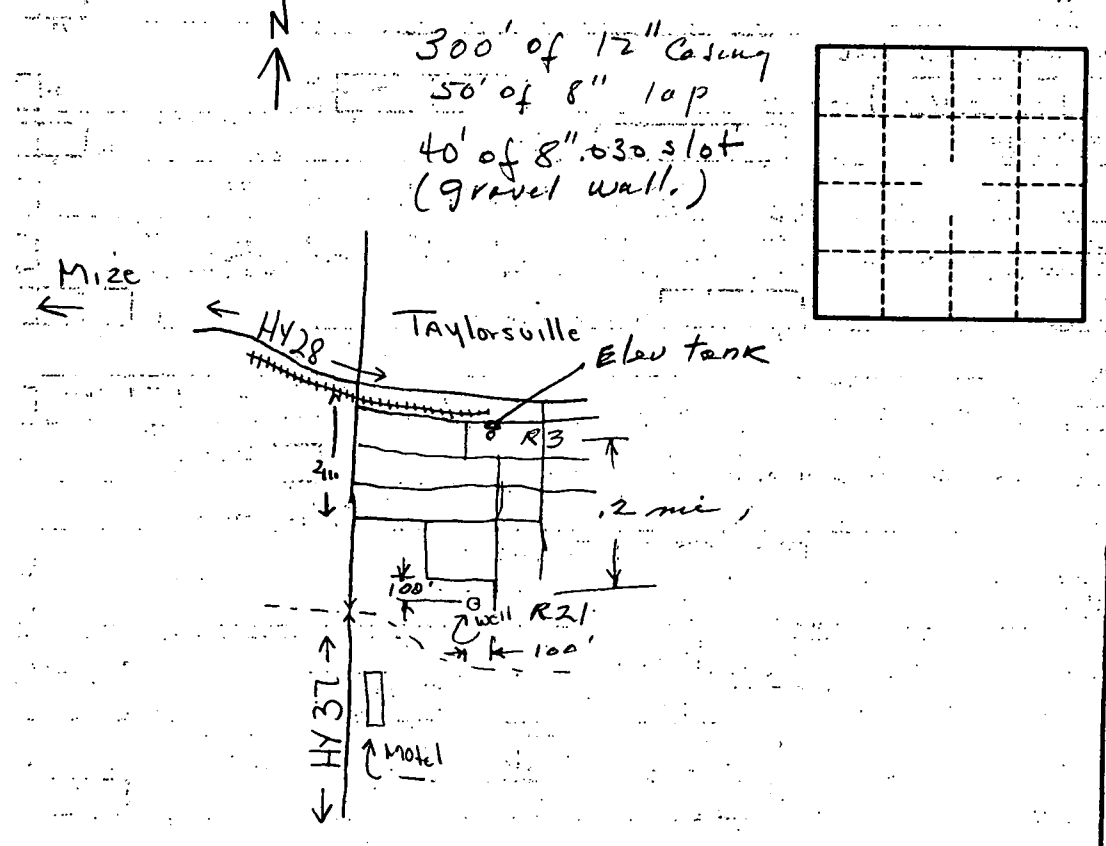 N
300' of 12" Casing
50' of 8" lap
40' of 8" .030 slot
(gravel wall.)
Mize
HY 28
TAylorsville
Elev tank
R3
.2 mi,
100'
well R21
100'
HY 37
Motel